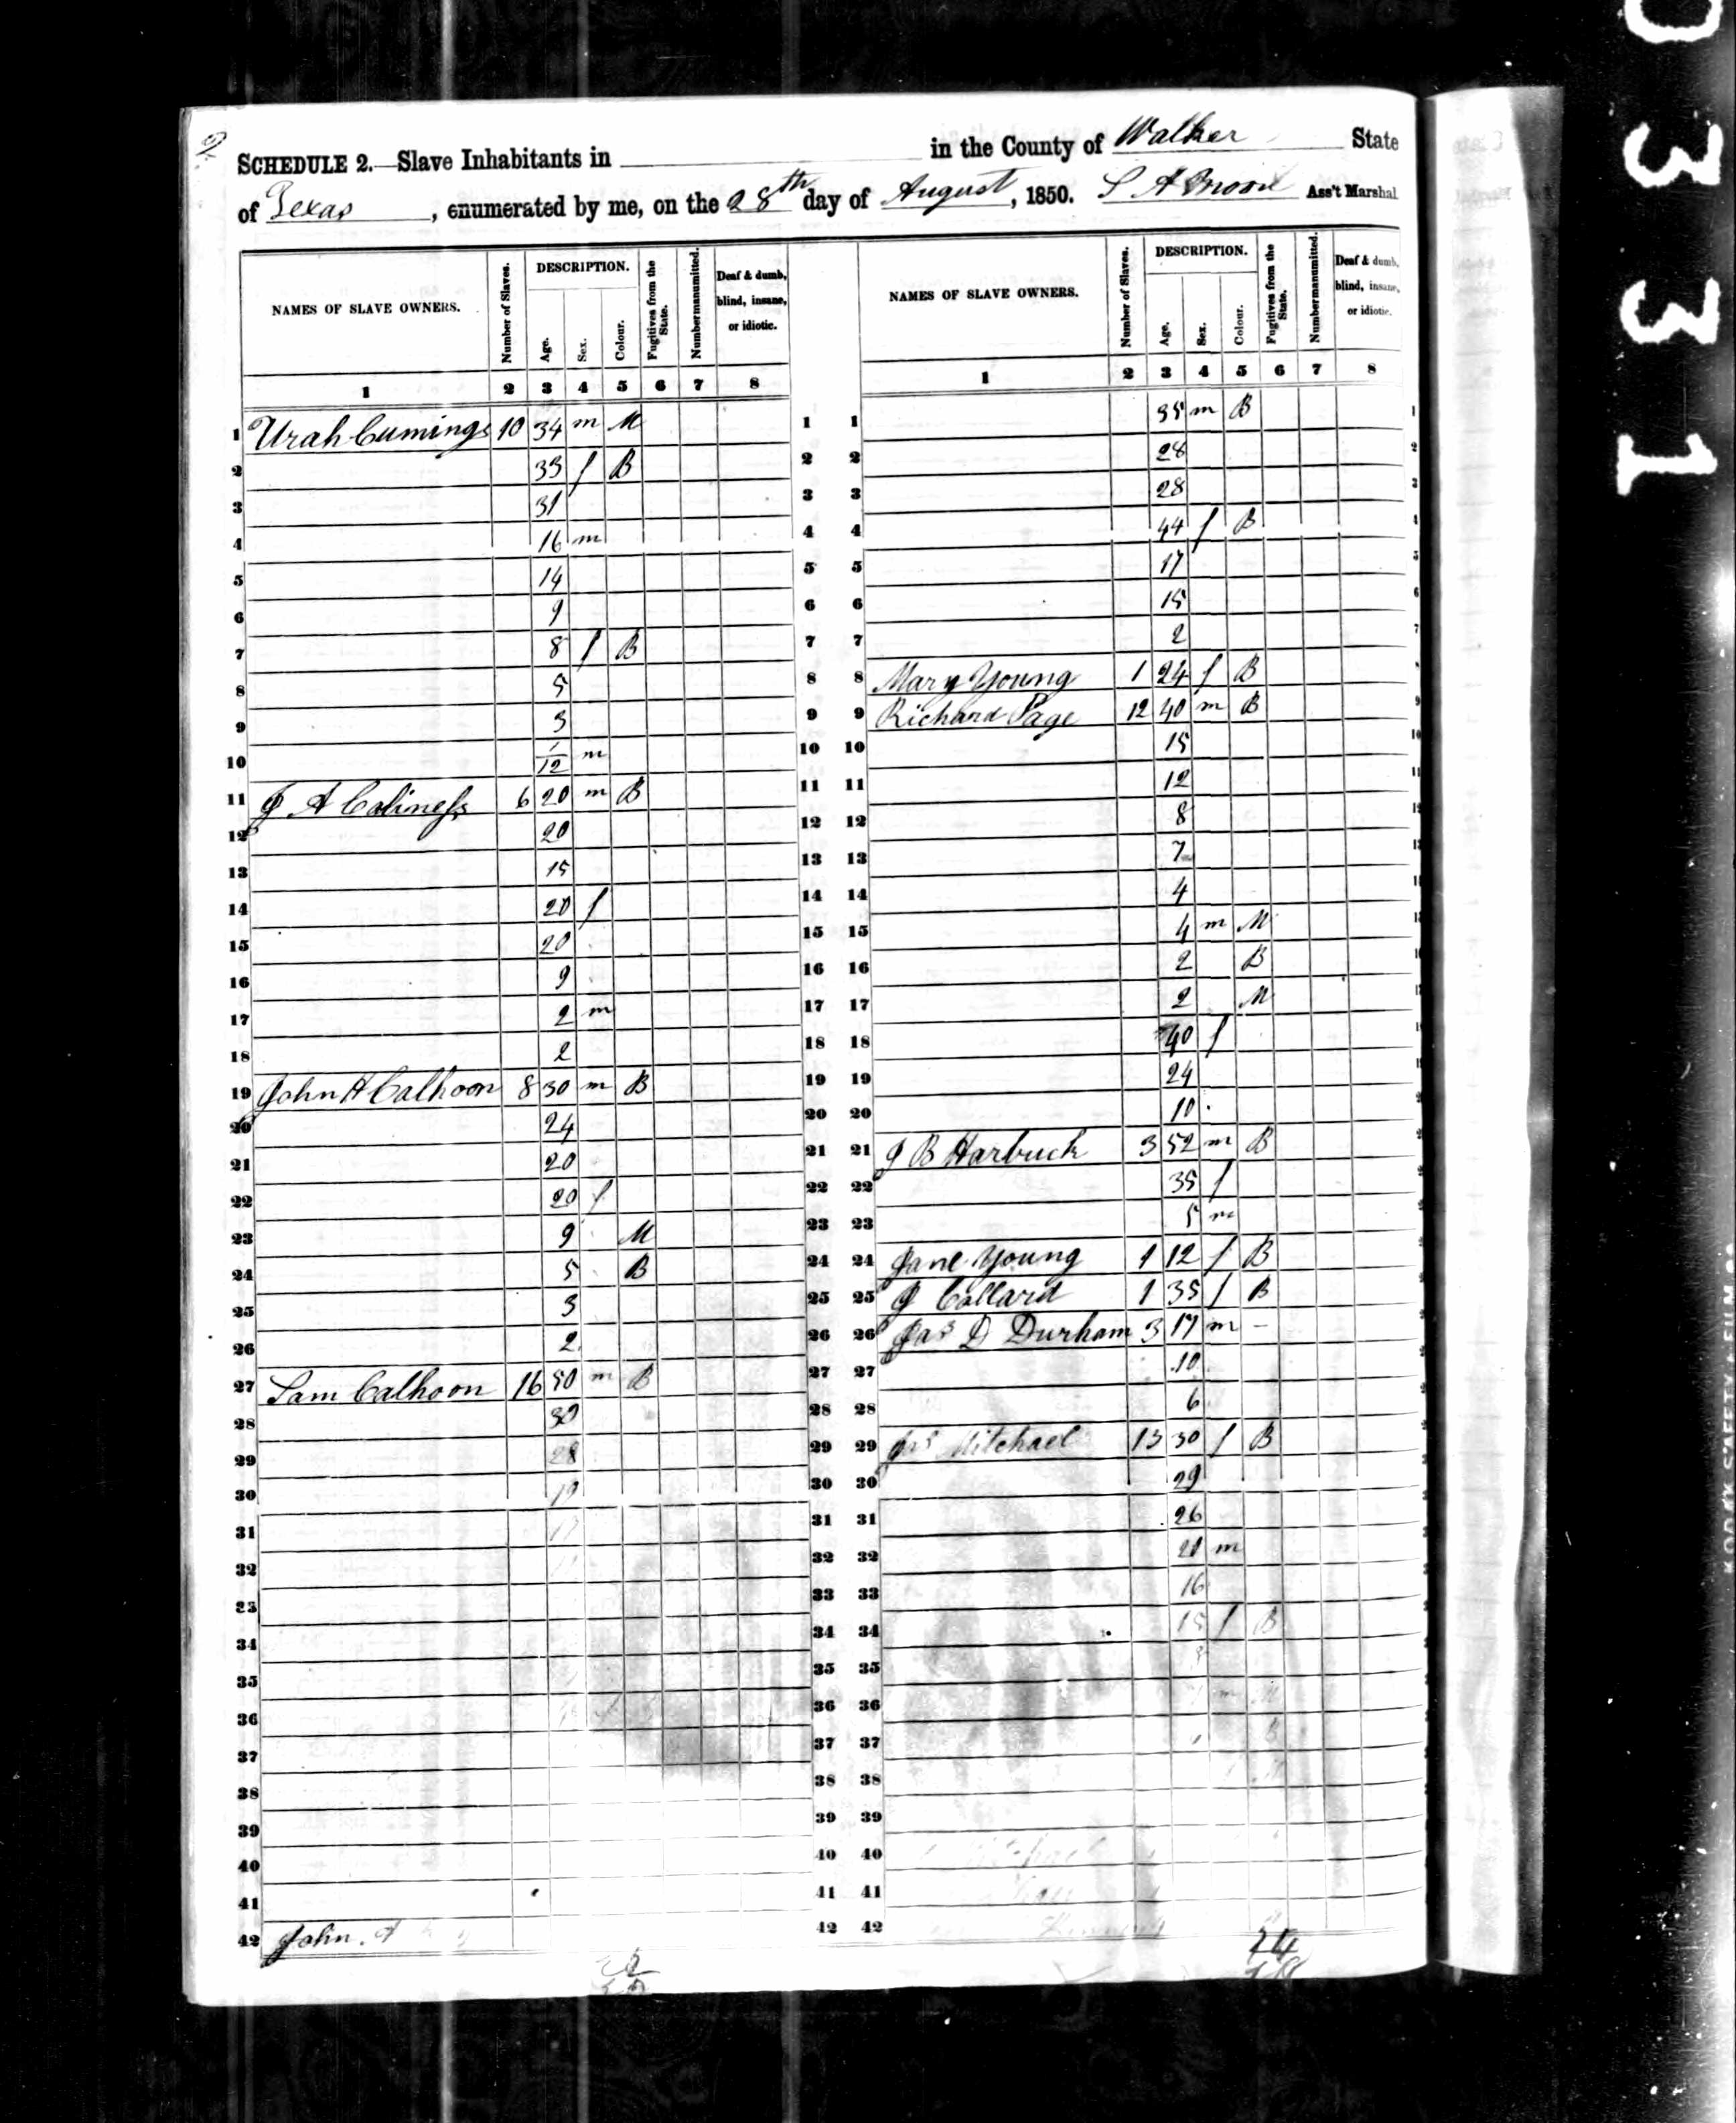 2
SCHEDULE 2.—Slave Inhabitants in in the County of Walker State
of Texas, enumerated by me, on the 28th day of August, 1850. S A Ass't Marshal
NAMES OF SLAVE OWNERS. Number of Slaves. DESCRIPTION. Age. Sex. Colour. Fugitives from the State. Number manumitted. Deaf & dumb, blind, insane, or idiotic.
1 2 3 4 5 6 7 8
1 Urah Cumings 10 34 m M 1
2 33 f B 2
3 31 3
4 16 m 4
5 14 5
6 9 6
7 8 f B 7
8 5 8
9 3 9
10 1/12 m 10
11 J A 6 20 m B 11
12 20 12
13 15 13
14 20 f 14
15 20 15
16 9 16
17 2 m 17
18 2 18
19 John H Calhoon 8 30 m B 19
20 24 20
21 20 21
22 20 f 22
23 9 M 23
24 5 B 24
25 3 25
26 2 26
27 Sam Calhoon 16 50 m B 27
28 30 28
29 28 29
30 19 30
31 31
32 32
33 33
34 34
35 35
36 36
37 37
38 38
39 39
40 40
41 41
42 John 42
NAMES OF SLAVE OWNERS. Number of Slaves. DESCRIPTION. Age. Sex. Colour. Fugitives from the State. Number manumitted. Deaf & dumb, blind, insane, or idiotic.
1 2 3 4 5 6 7 8
1 35 m B
2 28
3 28
4 44 f B
5 17
6 15
7 2
8 Mary Young 1 24 f B
9 Richard Page 12 40 m B
10 15
11 12
12 8
13 7
14 4
15 4 m M
16 2 B
17 2 M
18 40 f
19 24
20 10
21 J B Harbuck 3 52 m B
22 35 f
23 5 m
24 Jane Young 1 12 f B
25 J Collard 1 35 f B
26 Jas D Durham 3 17 m –
27 10
28 6
29 Mitchael 13 30 f B
30 29
31 26
32 20 m
33 16
34 15 f B
35 8
36 m M
37
38
39
40
41
42
24
0331